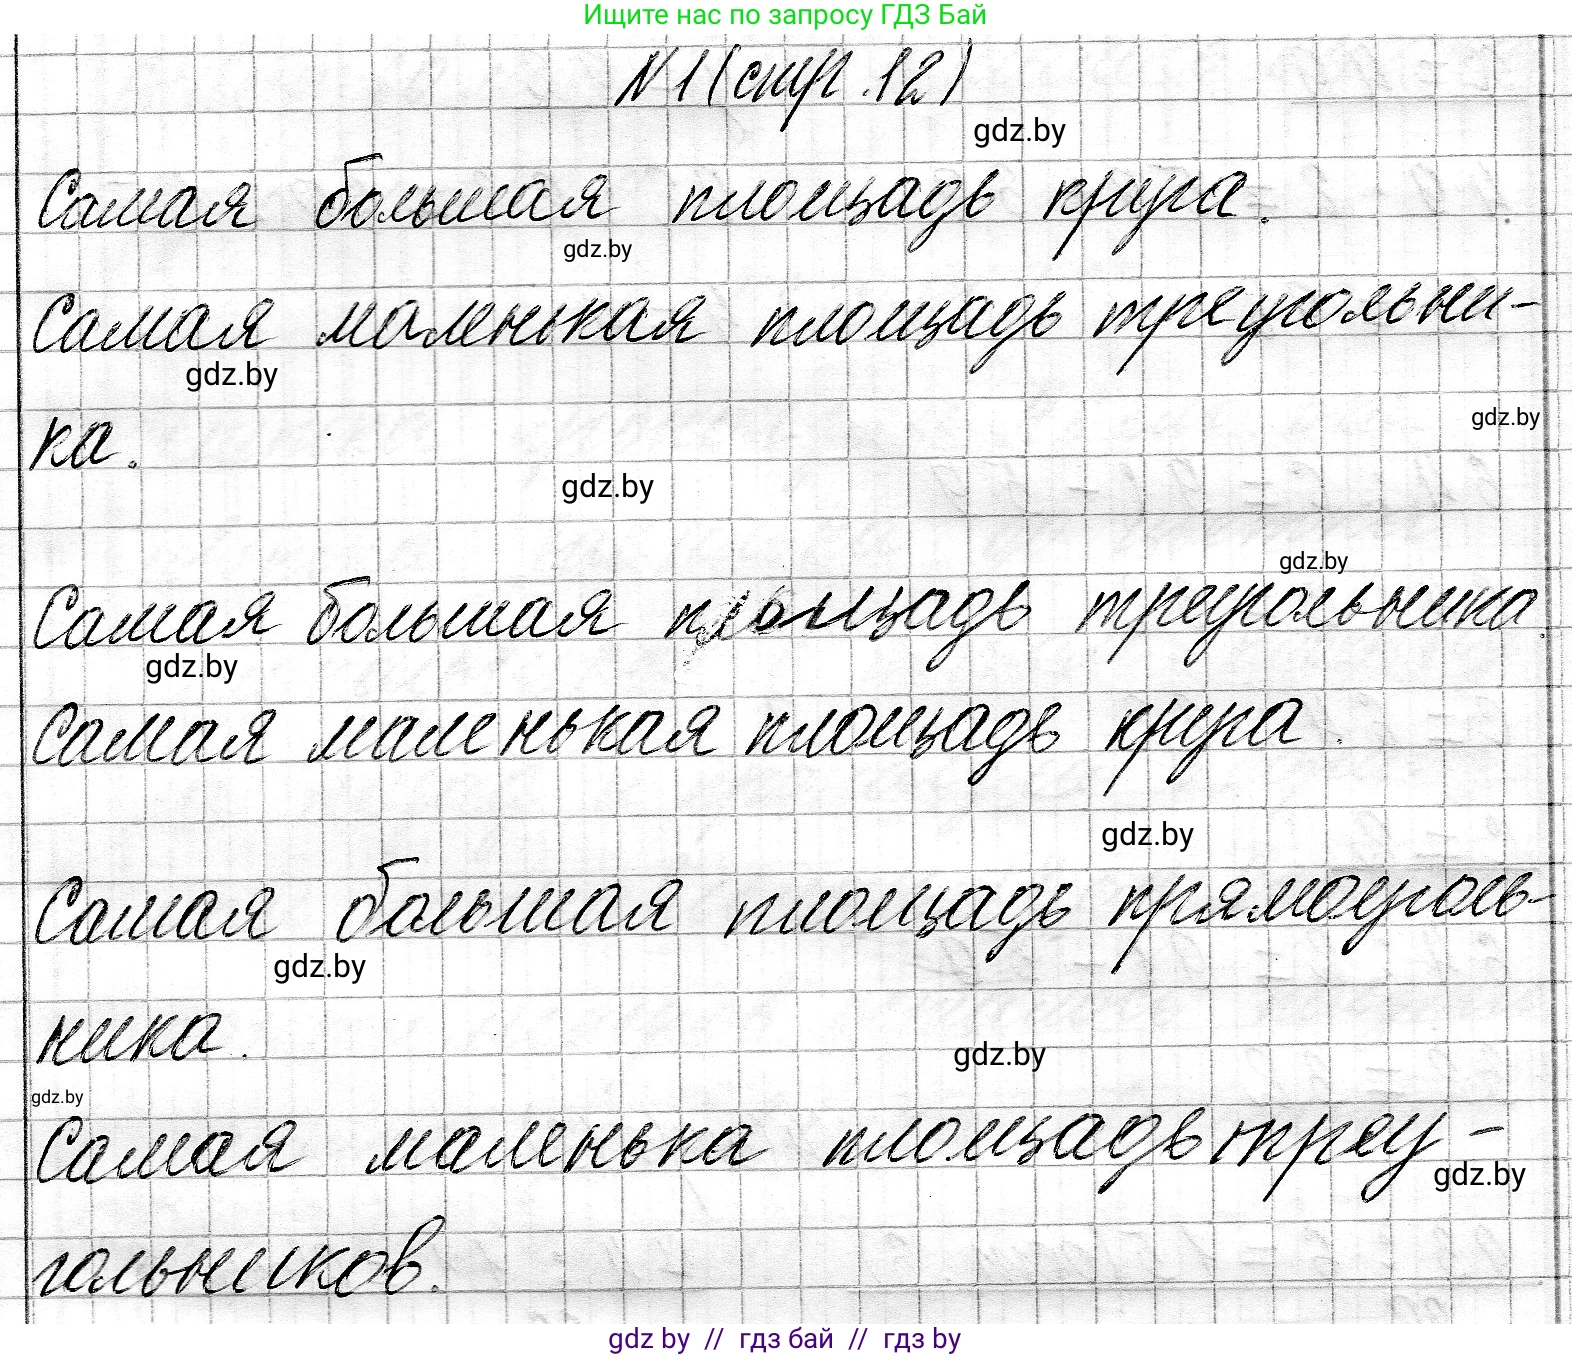 Ищите нас по запросу ГДЗ Бай
N 1 (стр. 12)
gdz.by
Самая большая площадь круга.
gdz.by
Самая маленькая площадь треугольни-
gdz.by
ка.
gdz.by
gdz.by
gdz.by
Самая большая площадь треугольника.
gdz.by
Самая маленькая площадь круга.
gdz.by
Самая большая площадь прямоуголь-
gdz.by
ника.
gdz.by
gdz.by
Самая маленька площадь треу-
gdz.by
гольников.
gdz by // гдз бай // гдз by